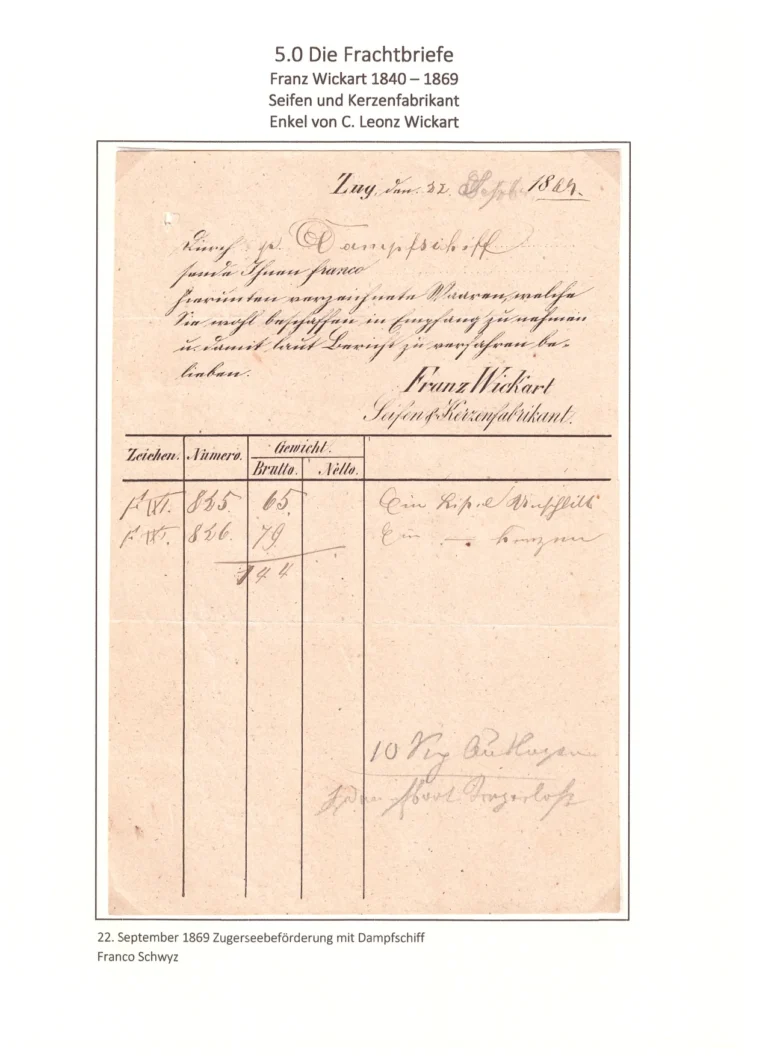 5.0 Die Frachtbriefe
Franz Wickart 1840 – 1869
Seifen und Kerzenfabrikant
Enkel von C. Leonz Wickart
Zug, den 22. Septbr 1869.
Durch pr. Dampfschiff
sende Ihnen franco
hierunten verzeichnete Waaren, welche
Sie wohl beschaffen in Empfang zu nehmen
u. damit laut Bericht zu verfahren be-
lieben.
Franz Wickart
Seifen & Kerzenfabrikant.
Zeichen. Numero. Gewicht.
Brutto. Netto.
825. 65. Ein Unschlitt
826. 79 Ein — Kerzen
144
10
22. September 1869 Zugerseebeförderung mit Dampfschiff
Franco Schwyz